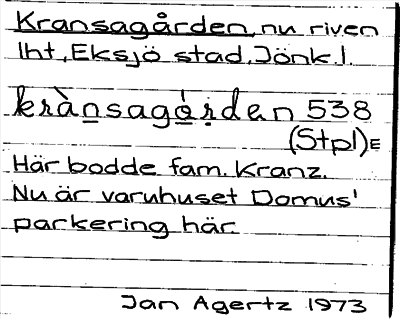 Kransagården, nu riven
lht, Eksjö stad, Jönk. l.
krànsagó̱ṛden 538
(Stpl)E
Här bodde fam. Kranz.
Nu är varuhuset Domus'
parkering här.
Jan Agertz 1973